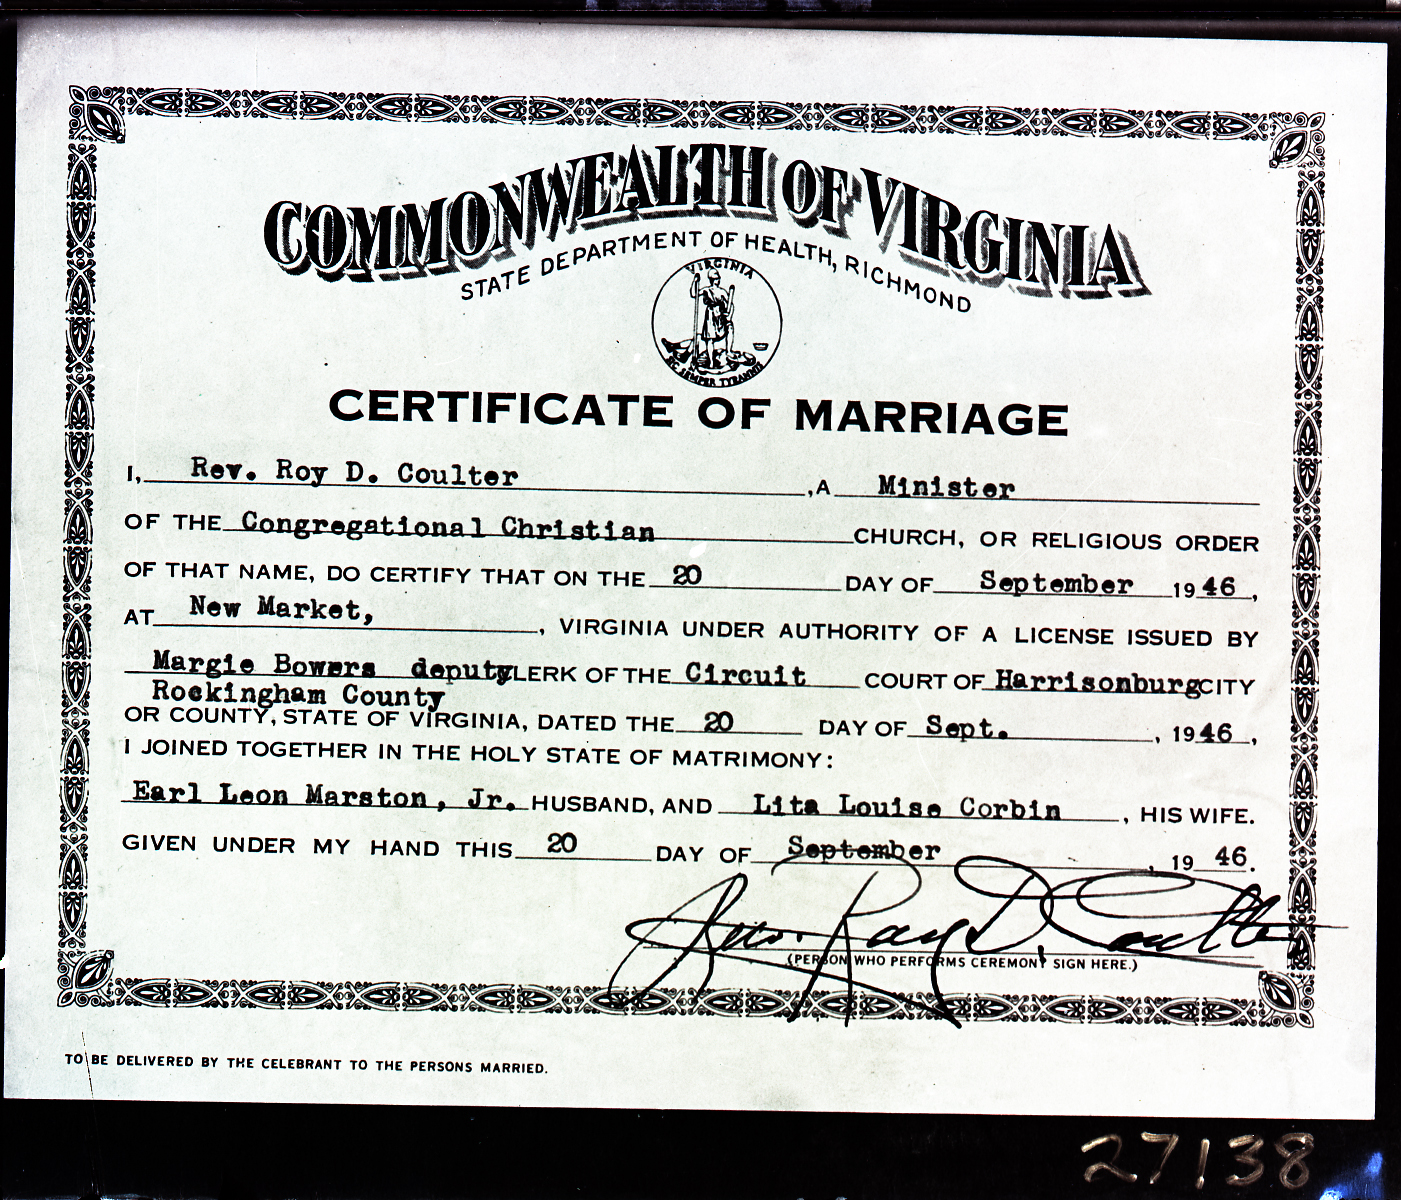 COMMONWEALTH OF VIRGINIA
STATE DEPARTMENT OF HEALTH, RICHMOND
VIRGINIA
SIC SEMPER TYRANNIS
CERTIFICATE OF MARRIAGE
I, Rev. Roy D. Coulter , A Minister
OF THE Congregational Christian CHURCH, OR RELIGIOUS ORDER
OF THAT NAME, DO CERTIFY THAT ON THE 20 DAY OF September 1946,
AT New Market, , VIRGINIA UNDER AUTHORITY OF A LICENSE ISSUED BY
Margie Bowers deputy CLERK OF THE Circuit COURT OF Harrisonburg CITY
Rockingham County
OR COUNTY, STATE OF VIRGINIA, DATED THE 20 DAY OF Sept. , 1946,
I JOINED TOGETHER IN THE HOLY STATE OF MATRIMONY:
Earl Leon Marston, Jr. HUSBAND, AND Lita Louise Corbin , HIS WIFE.
GIVEN UNDER MY HAND THIS 20 DAY OF September , 19 46.
Rev. Roy D. Coulter
(PERSON WHO PERFORMS CEREMONY SIGN HERE.)
TO BE DELIVERED BY THE CELEBRANT TO THE PERSONS MARRIED.
27138